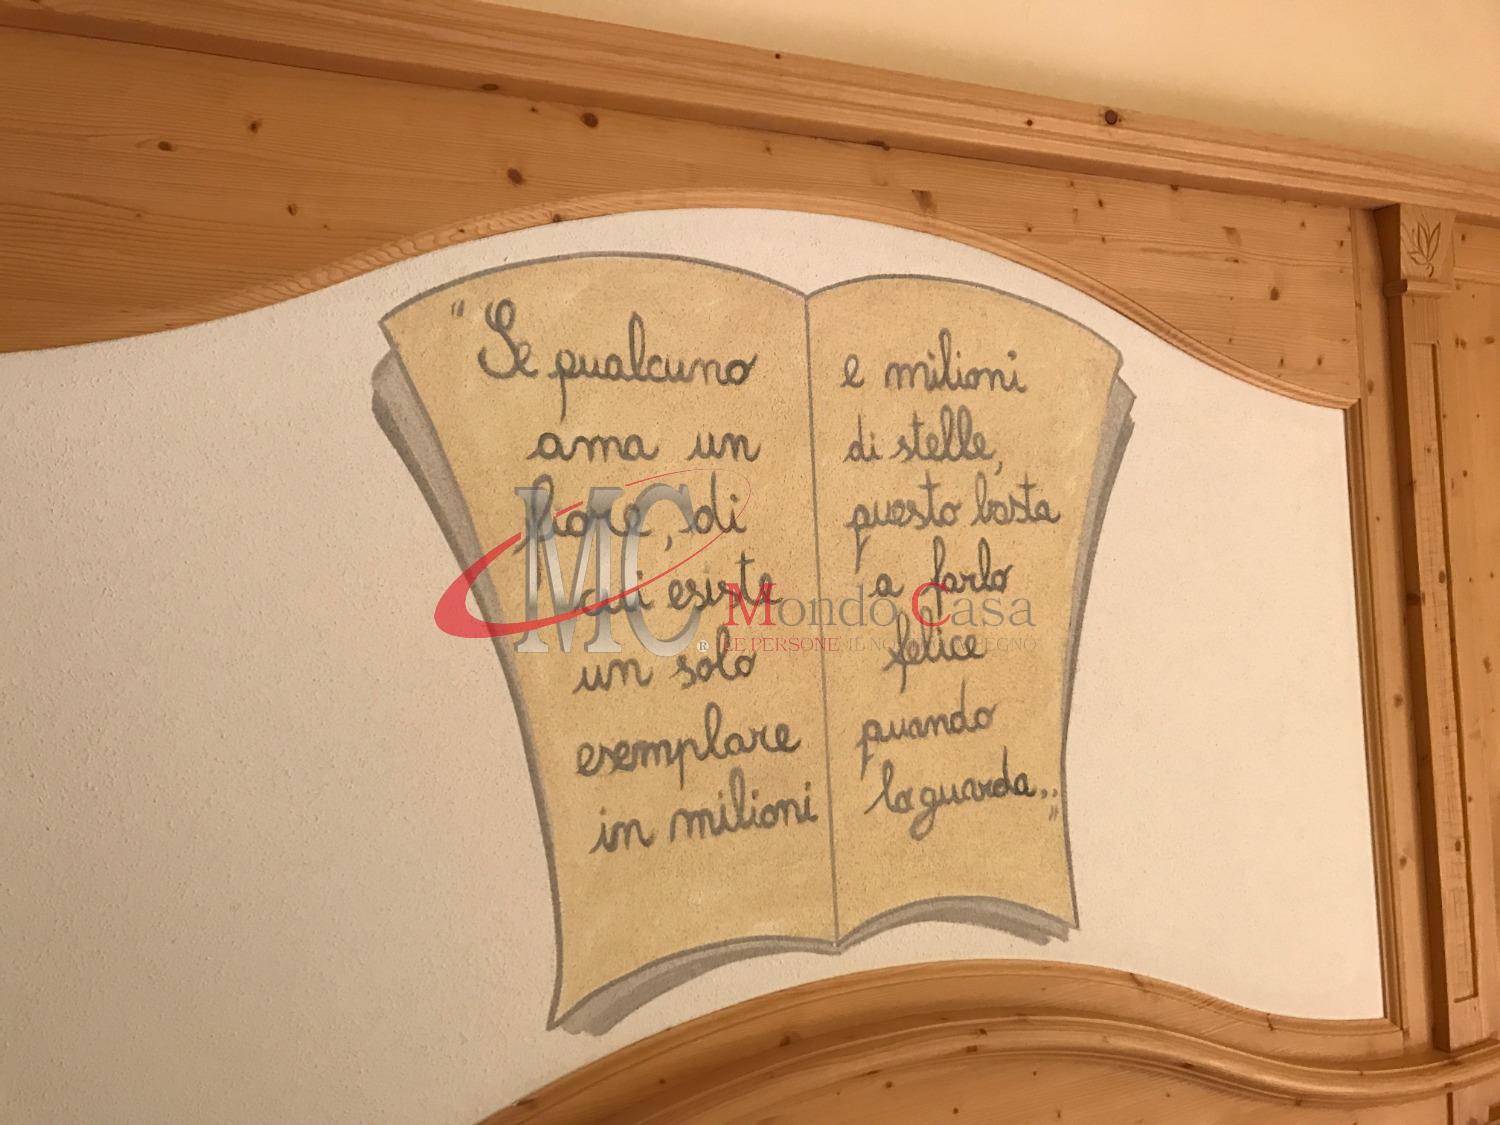 " Se qualcuno
ama un
fiore, di
cui esiste
un solo
esemplare
in milioni
e milioni
di stelle,
questo basta
a farlo
felice
quando
la guarda.."
MC
Mondo Casa
®
LE PERSONE IL NOSTRO IMPEGNO